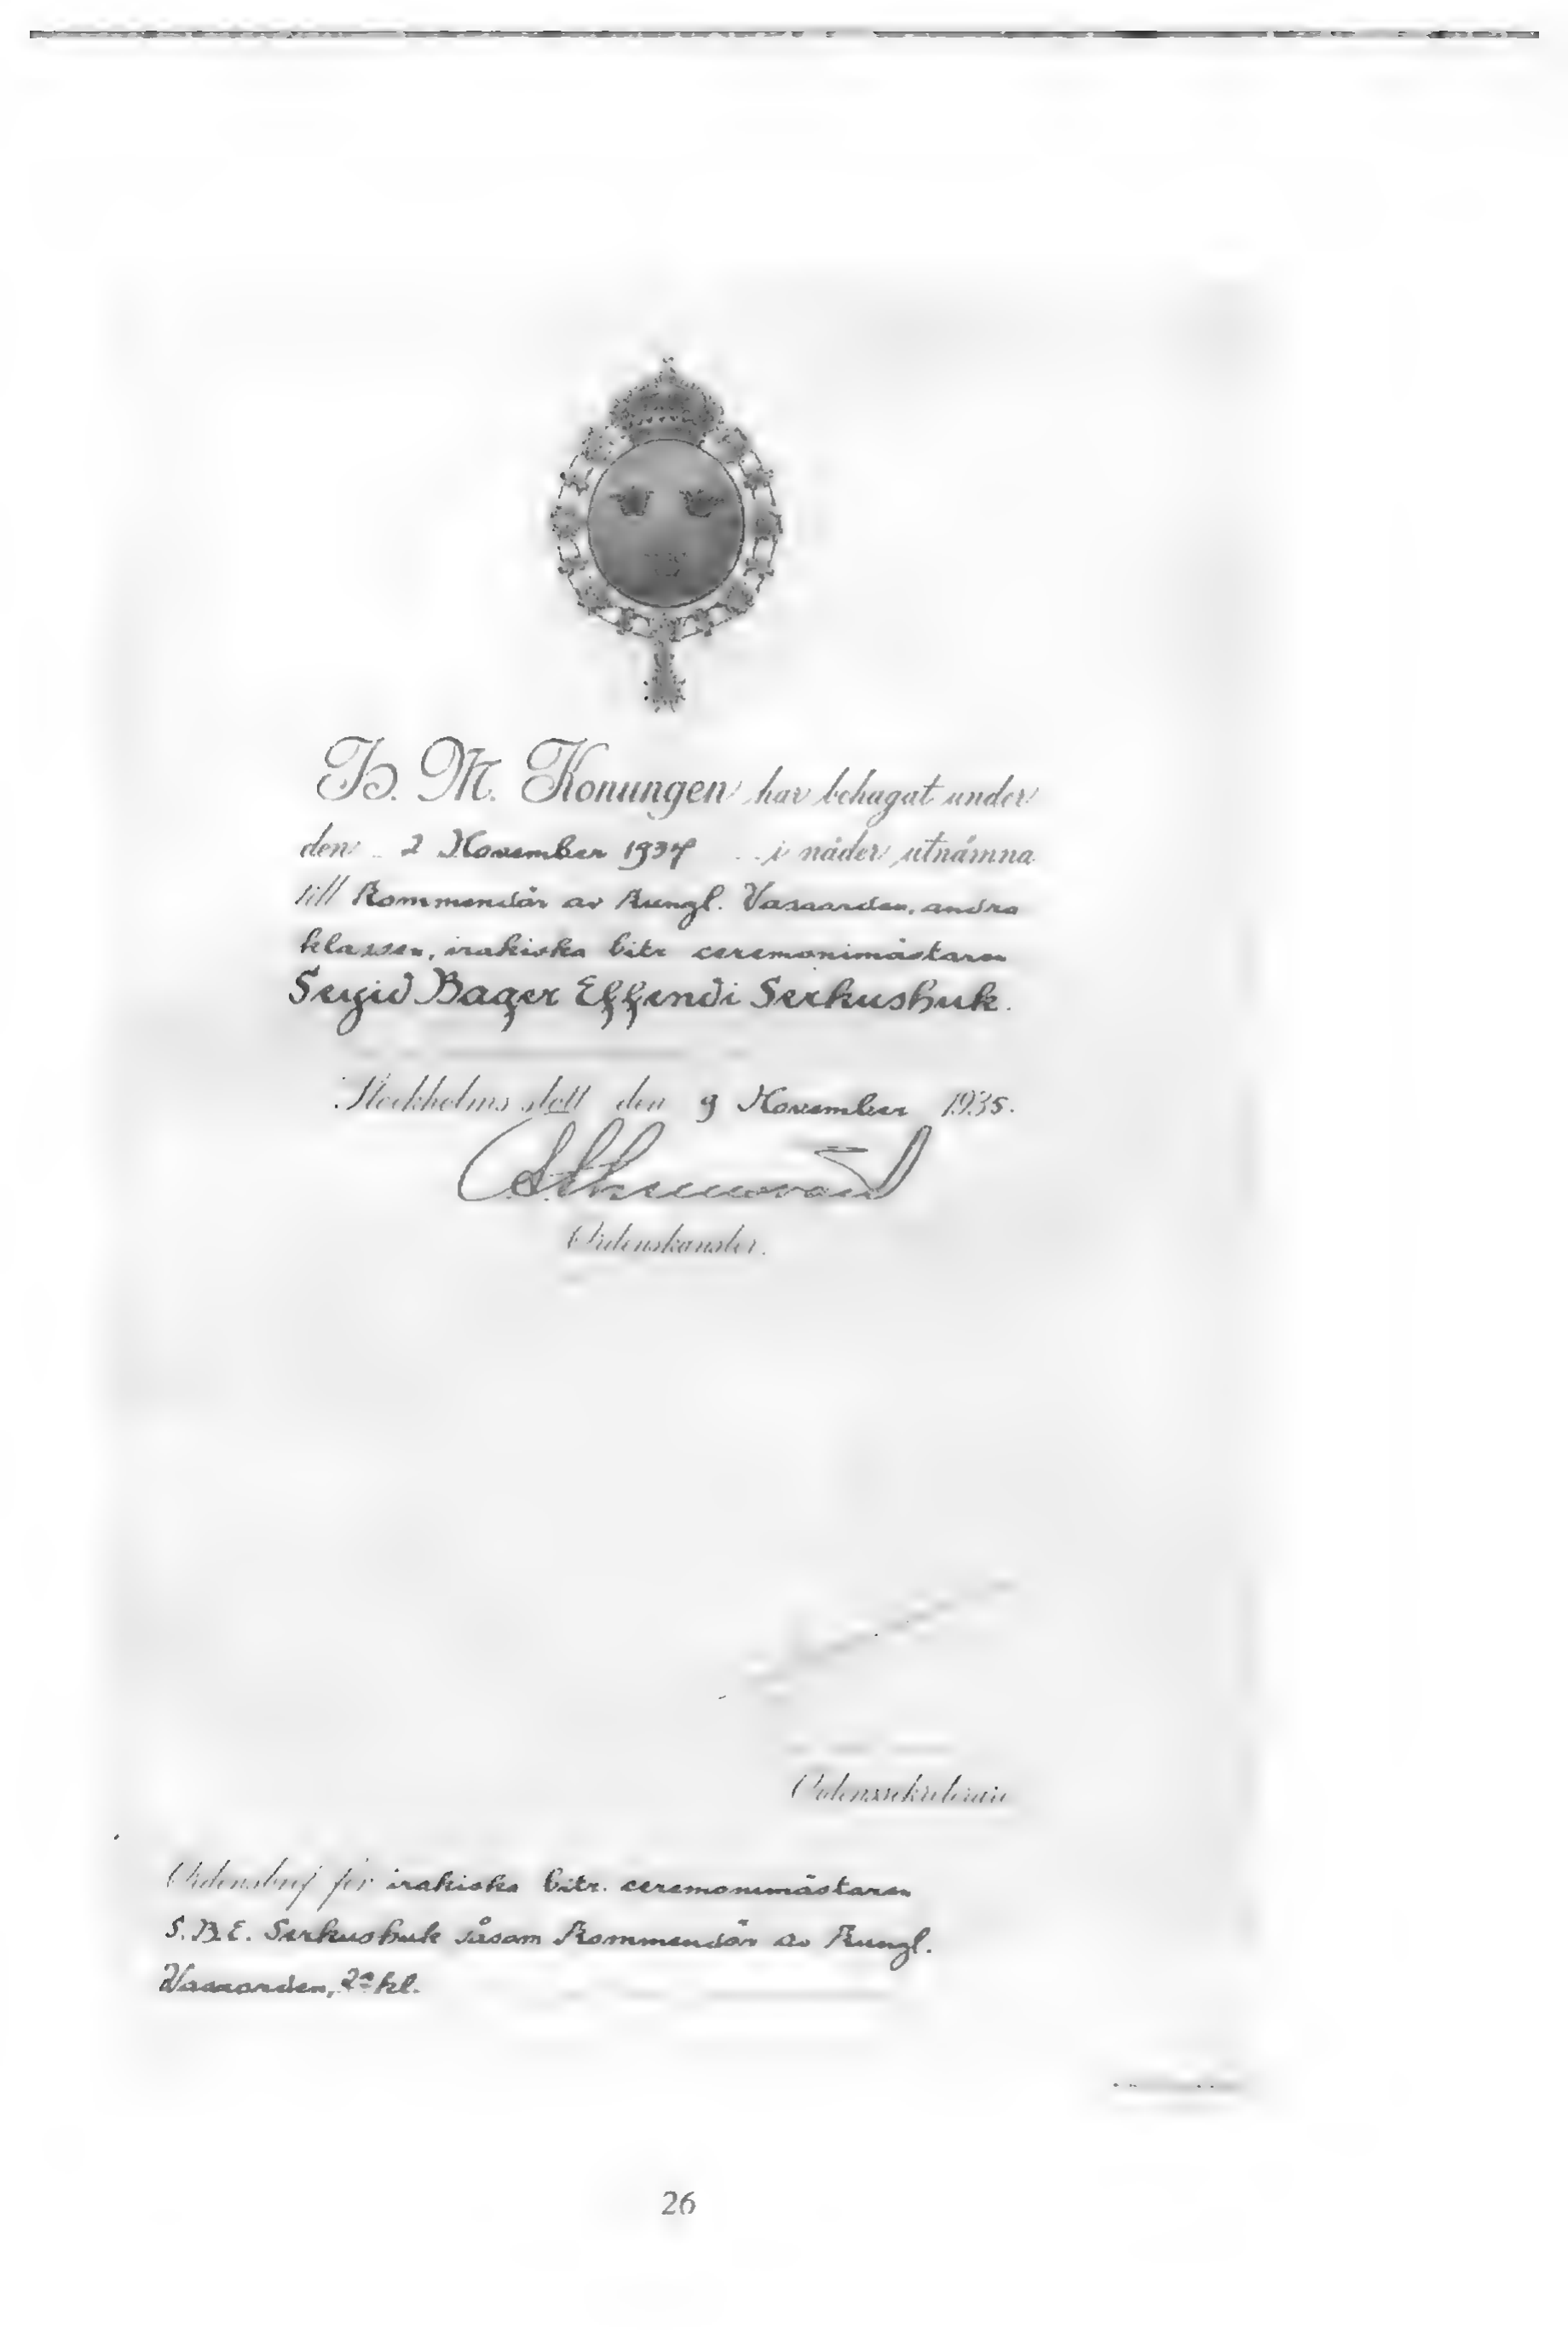 H. M. Konungen har behagat under
den 2 November 1934 i nåder utnämna
till Kommendör av Kungl. Vasaorden, andra
klassen, irakiska bitr ceremonimästaren
Seyid Bager Effendi Serkushuk.
Stockholms slott den 9 November 1935.
Ordenskansler.
Ordenssekreterare
Ordensbref för irakiska bitr. ceremonimästaren
S.B.E. Serkushuk såsom Kommendör av Kungl.
Vasaorden, 2a kl.
26